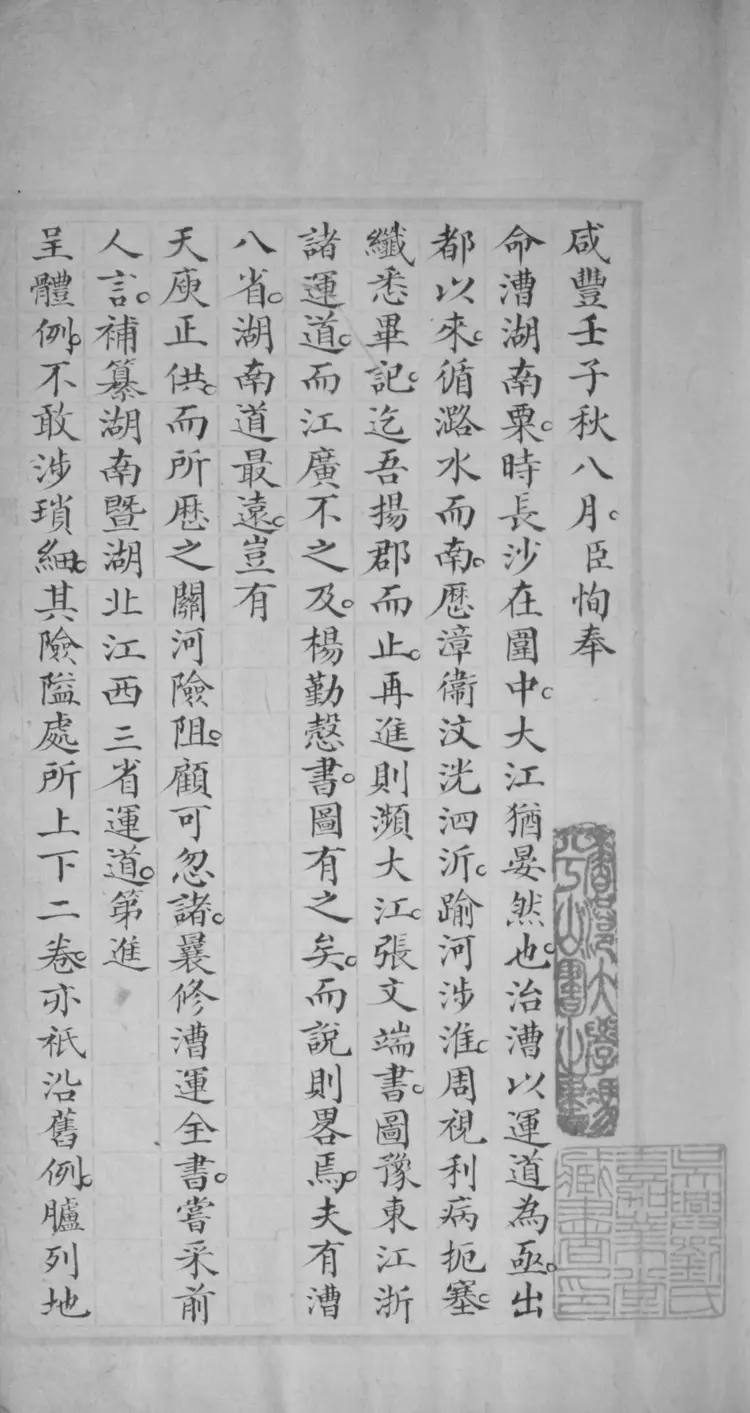 咸豐壬子秋八月。臣恂奉
命漕湖南粟。時長沙在圍中。大江猶晏然也。治漕以運道為亟。出
都以來。循潞水而南。歷漳衞汶洸泗沂。踰河涉淮。周視利病扼塞。
纖悉畢記。迄吾揚郡而止。再進則瀕大江。張文端書。圖豫東江浙
諸運道。而江廣不之及。楊勤愨書。圖有之矣。而說則畧焉。夫有漕
八省。湖南道最遠。豈有
天庾正供。而所歷之關河險阻。顧可忽諸。曩修漕運全書。嘗采前
人言。補纂湖南暨湖北江西三省運道。第進
呈體例。不敢涉瑣細。其險隘處所上下二卷。亦祇沿舊例。臚列地
吳興劉氏
嘉業堂
藏書印